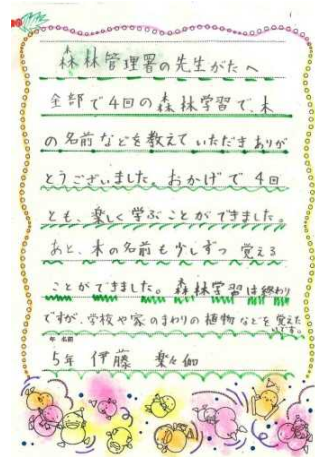 森林管理署の先生がたへ
全部で4回の森林学習で、木
の名前などを教えていただきありが
とうございました。おかげで4回
とも、楽しく学ぶことができました。
あと、木の名前も少しずつ覚える
ことができました。森林学習は終わり
ですが、学校や家のまわりの植物などを覚えた
いです。
年 名前
5年 伊藤 楽々伽